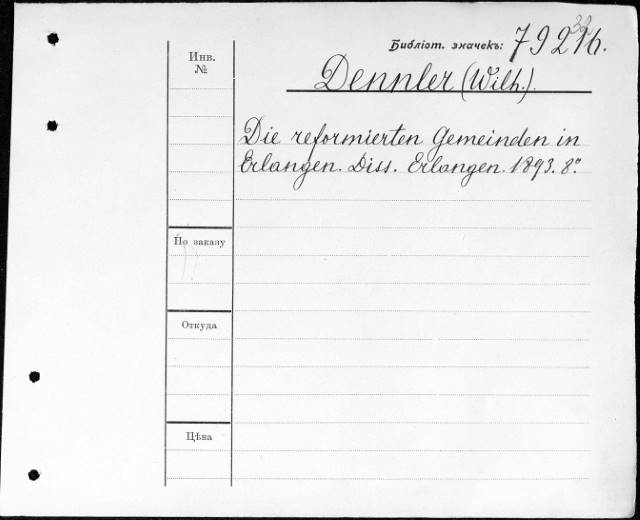 Библіот. значекъ:
Инв.
№
Dennler (Wilh.).
Die reformierten Gemeinden in
Erlangen. Diss. Erlangen. 1893. 8º.
По заказу
Откуда
Цѣна